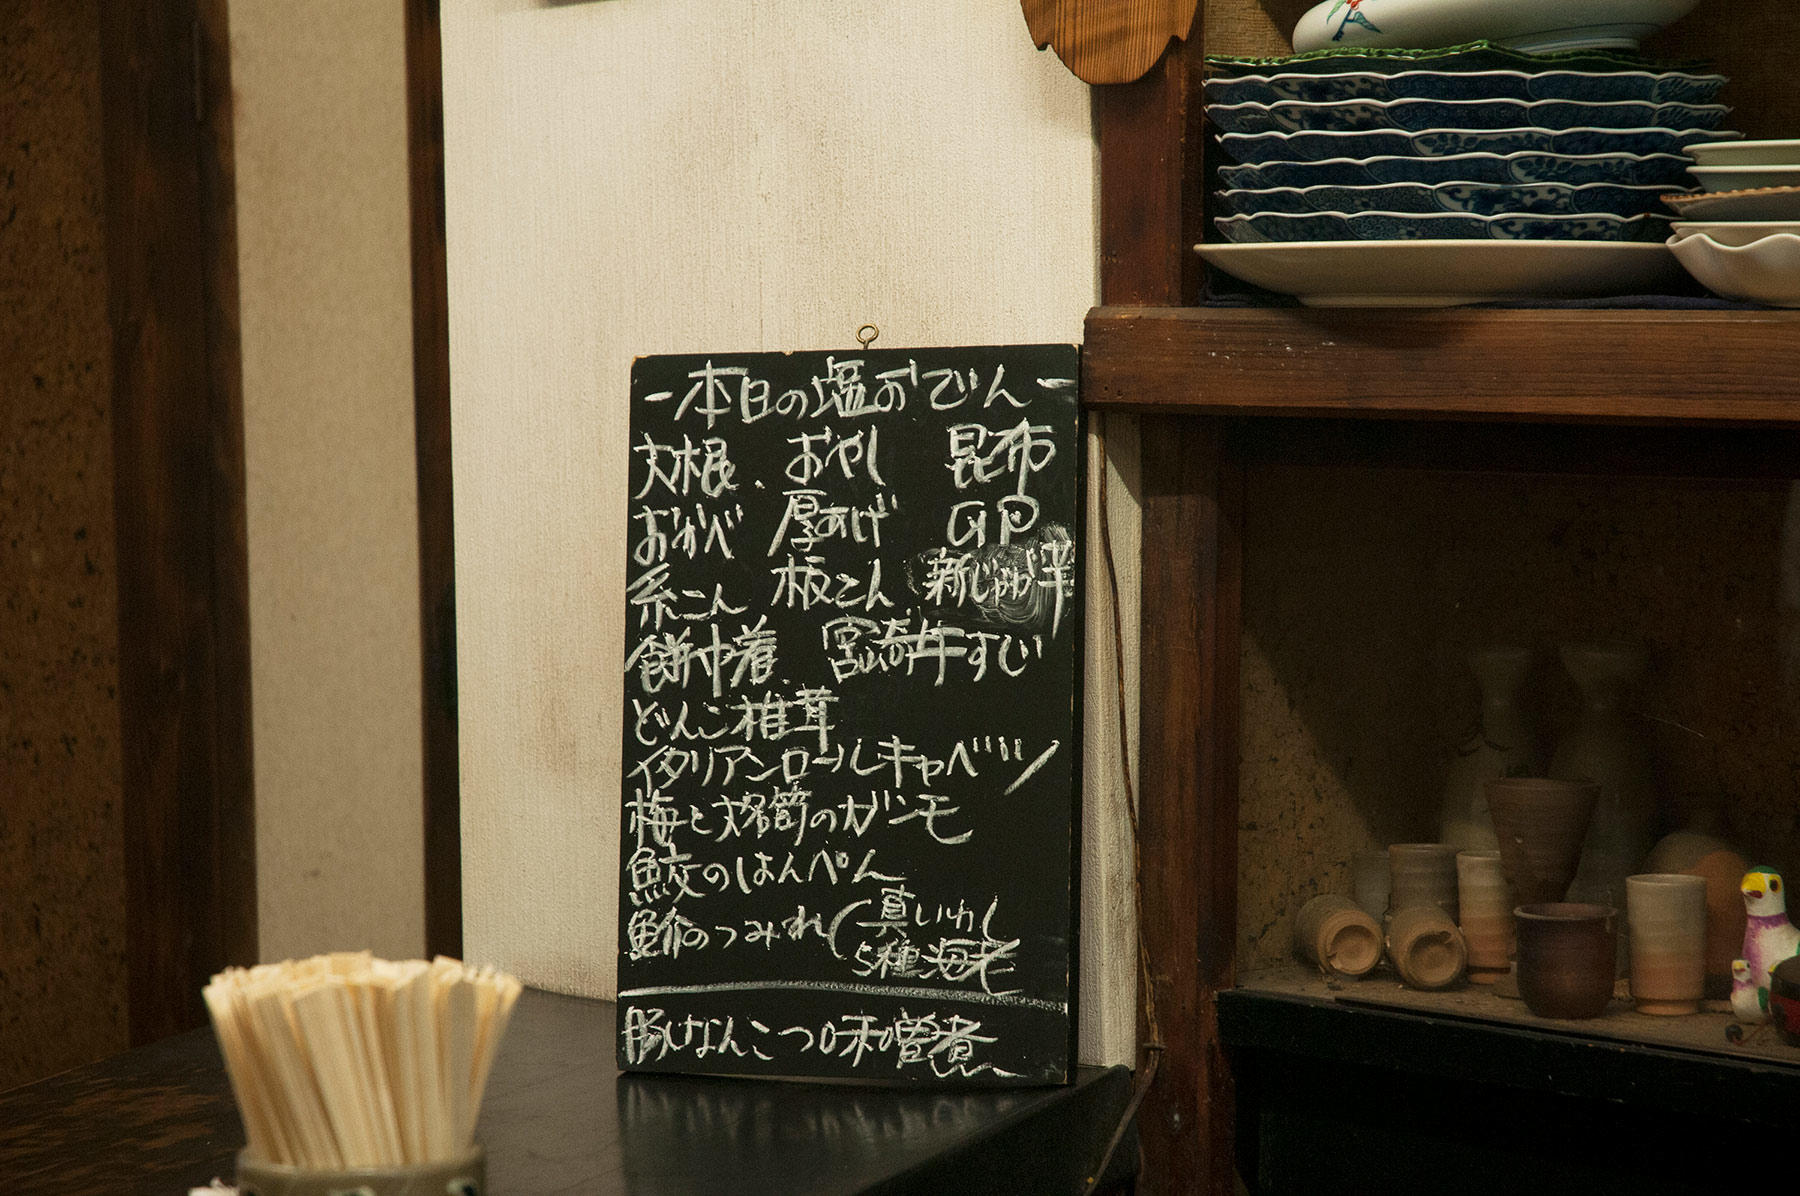 -本日の塩おでん-
大根、おやし 昆布
おかべ 厚あげ 卵
糸こん 板こん 新じゃが芋
餅巾着、宮崎牛すじ
どんこ椎茸
イタリアンロールキャベツ
梅と大名筍のガンモ
鮫のはんぺん
魚介のつみれ(真いわし
5種海老
豚なんこつ味噌煮